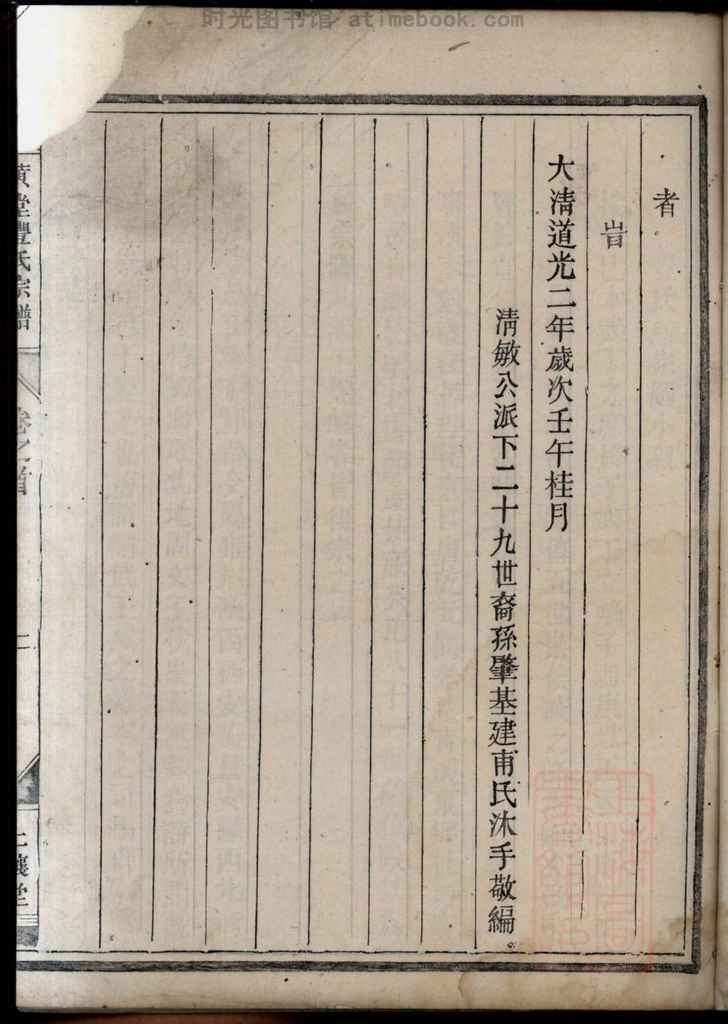 时光图书馆 atimebook.com
者
旹
大清道光二年歲次壬午桂月
清敏公派下二十九世裔孫肇基建甫氏沐手敬編
堂豐氏宗譜
卷之首
二
襄堂